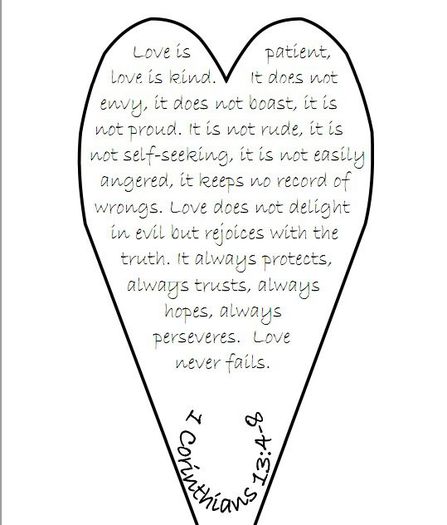 Love is patient,
love is kind. It does not
envy, it does not boast, it is
not proud. It is not rude, it is
not self-seeking, it is not easily
angered, it keeps no record of
wrongs. Love does not delight
in evil but rejoices with the
truth. It always protects,
always trusts, always
hopes, always
perseveres. Love
never fails.
1 Corinthians 13:4-8